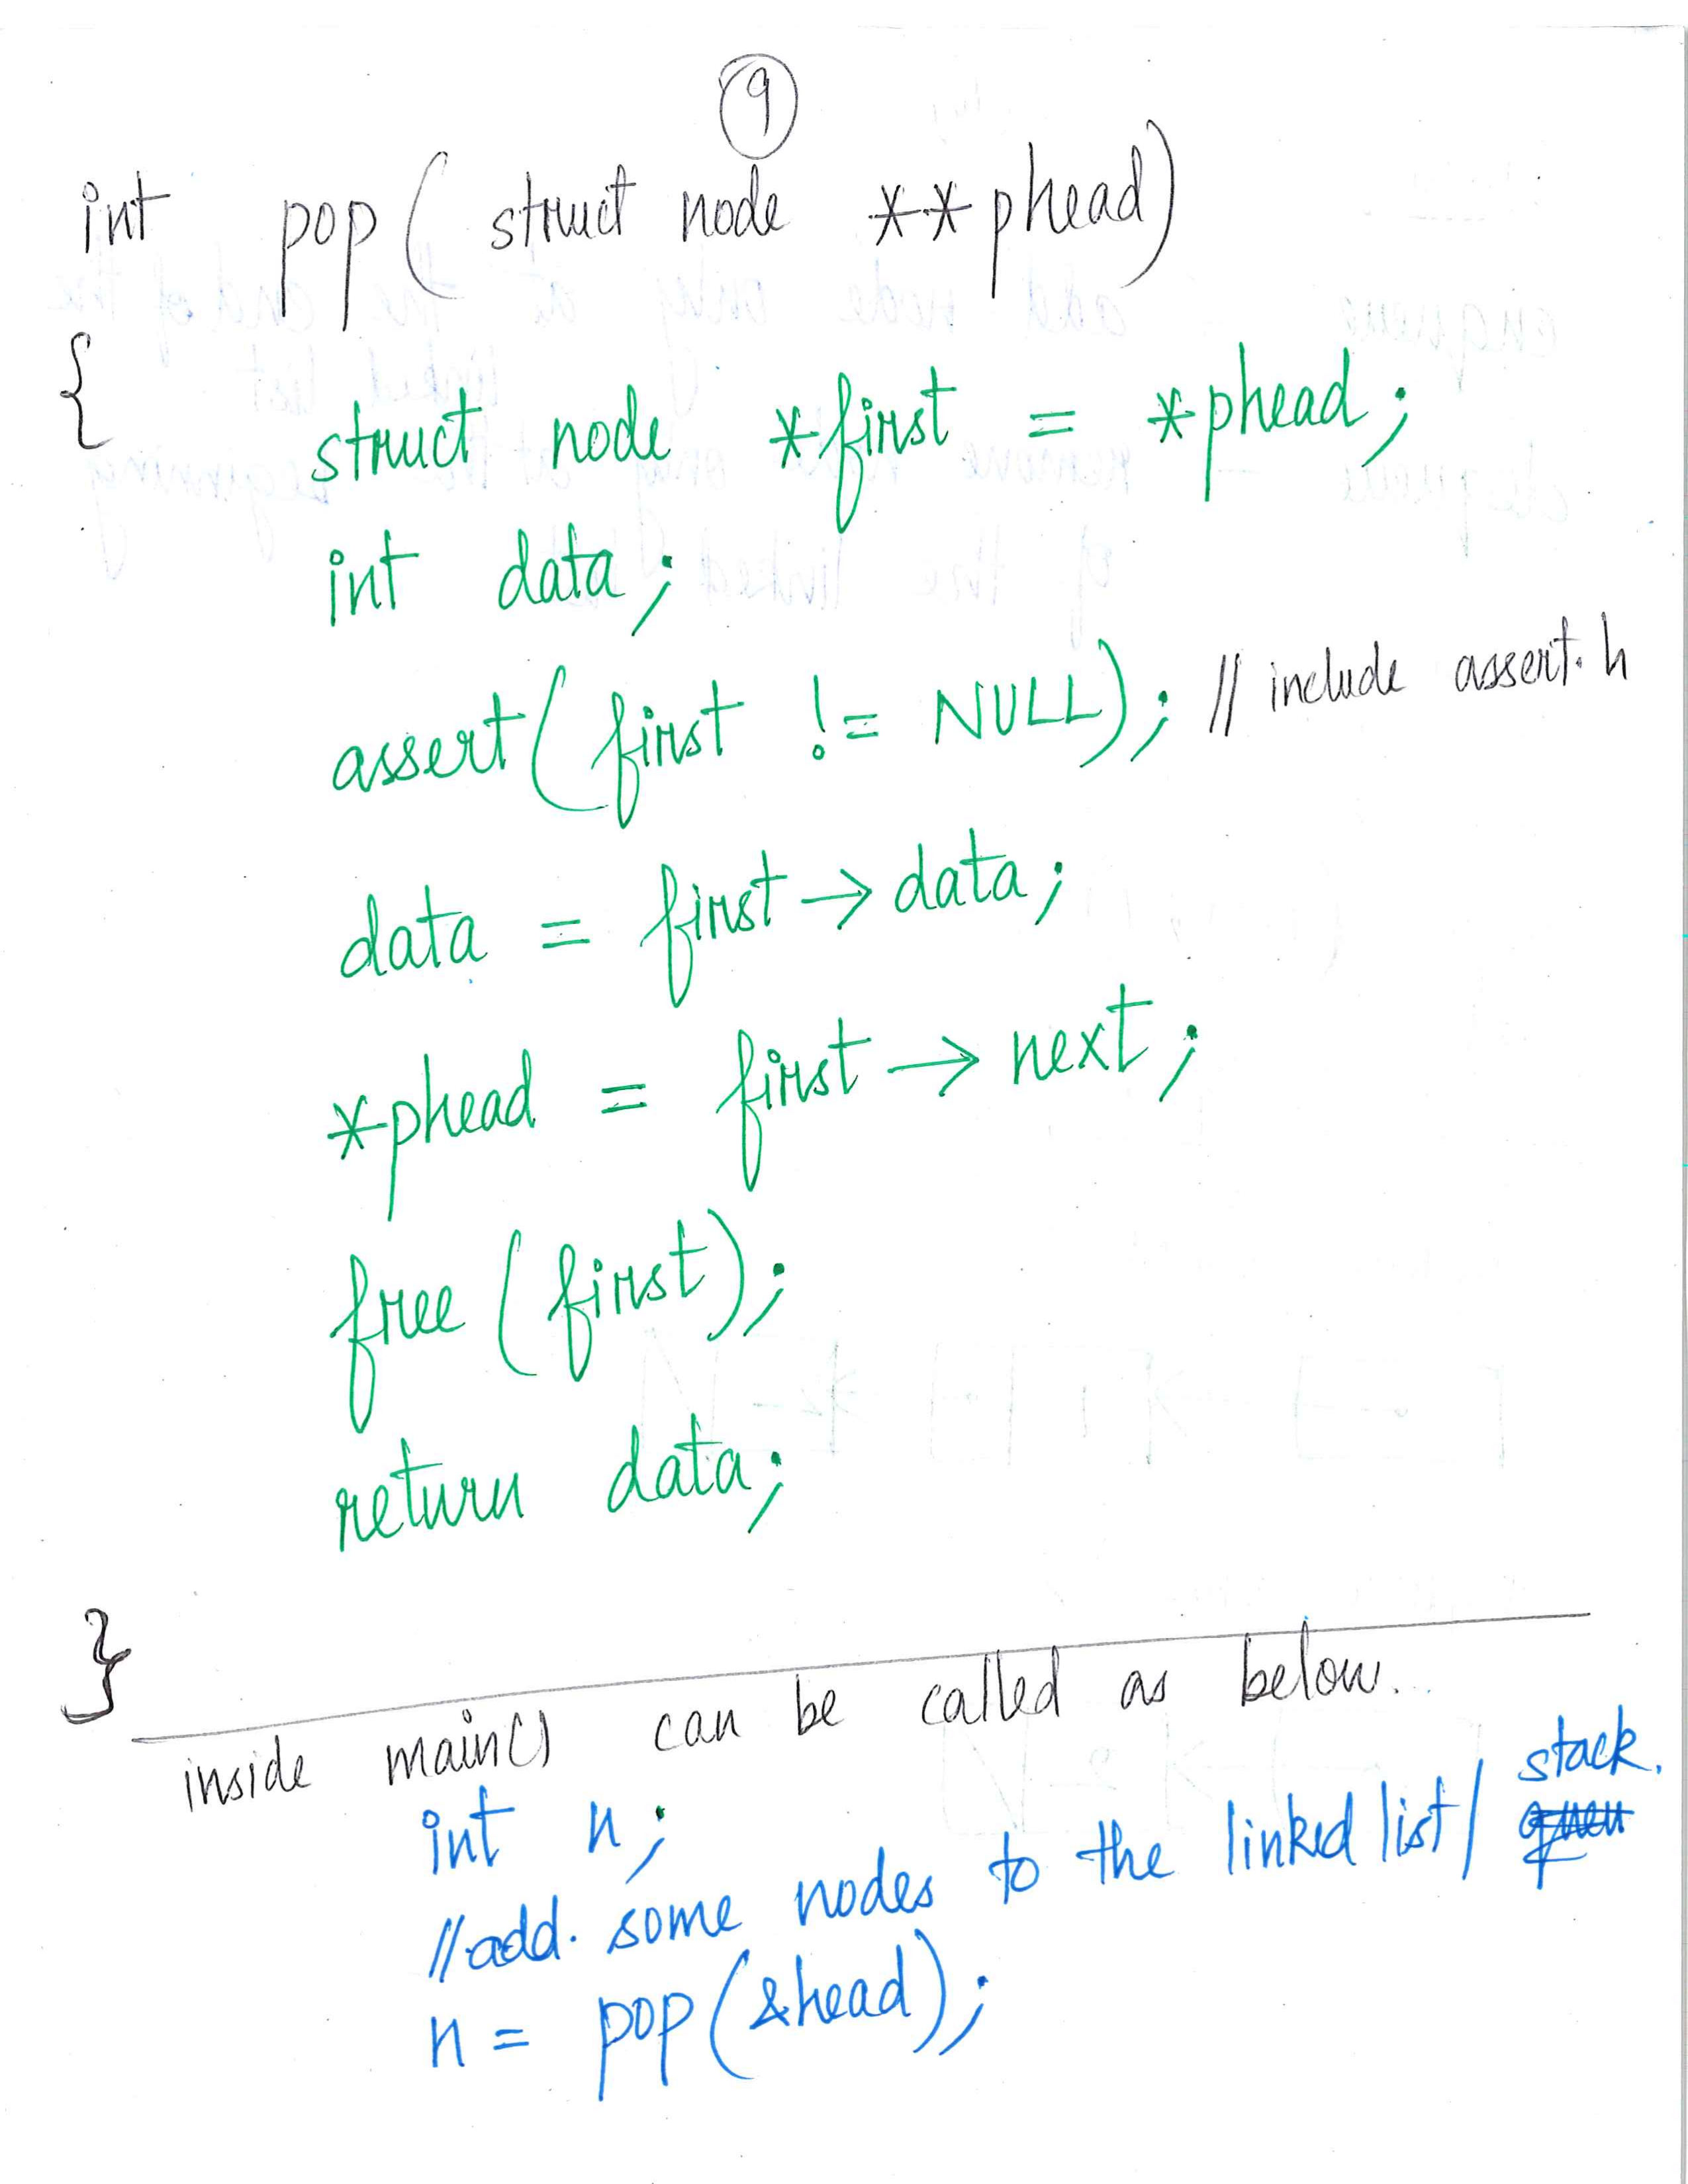 9
int pop( struct node **phead)
{
struct node *first = *phead;
int data;
assert( first != NULL); // include assert.h
data = first → data;
*phead = first → next;
free (first);
return data;
}
inside main() can be called as below.
int n;
//add. some nodes to the linked list/ stack.
n = pop(&head);